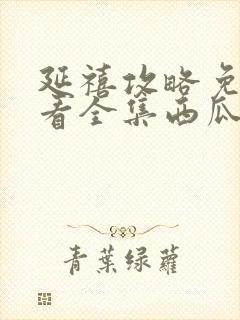 延禧攻略免
看全集西瓜
青葉绿蘿